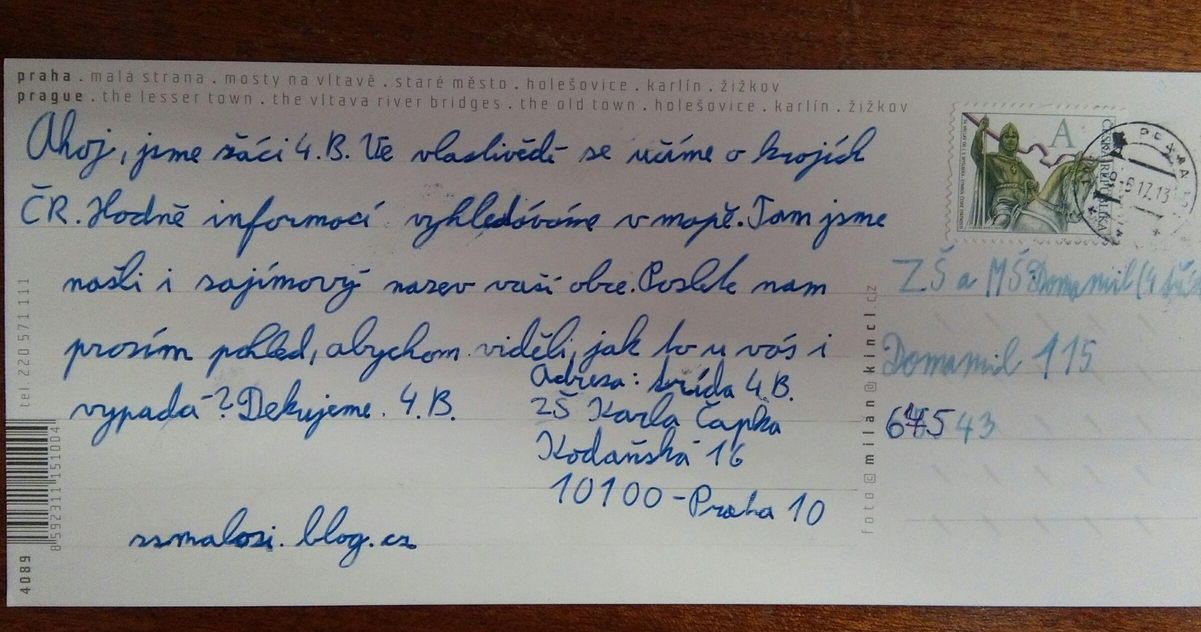 praha . malá strana . mosty na vltavě . staré město . holešovice . karlín . žižkov
prague . the lesser town . the vltava river bridges . the old town . holešovice . karlín . žižkov
Ahoj, jsme žáci 4.B. Ve vlastivědě se učíme o krojích
ČR. Hodně informací vyhledáváme v mapě. Tam jsme
našli i zajímavý nazev vaší obce. Pošlete nam
prosím pohled, abychom viděli, jak to u vás i
vypadá? Dekujeme. 4.B.
Adresa: třída 4.B.
ZŠ Karla Čapka
Kodaňská 16
10100 - Praha 10
zsmalosi.blog.cz
A
ČESKÁ REPUBLIKA
PRAHA
6 17.13
ZŠ a MŠ Domamil (4
Domamil 115
675 43
tel. 220 571 111
8 592311 151004
4089
foto © milan@kincl.cz